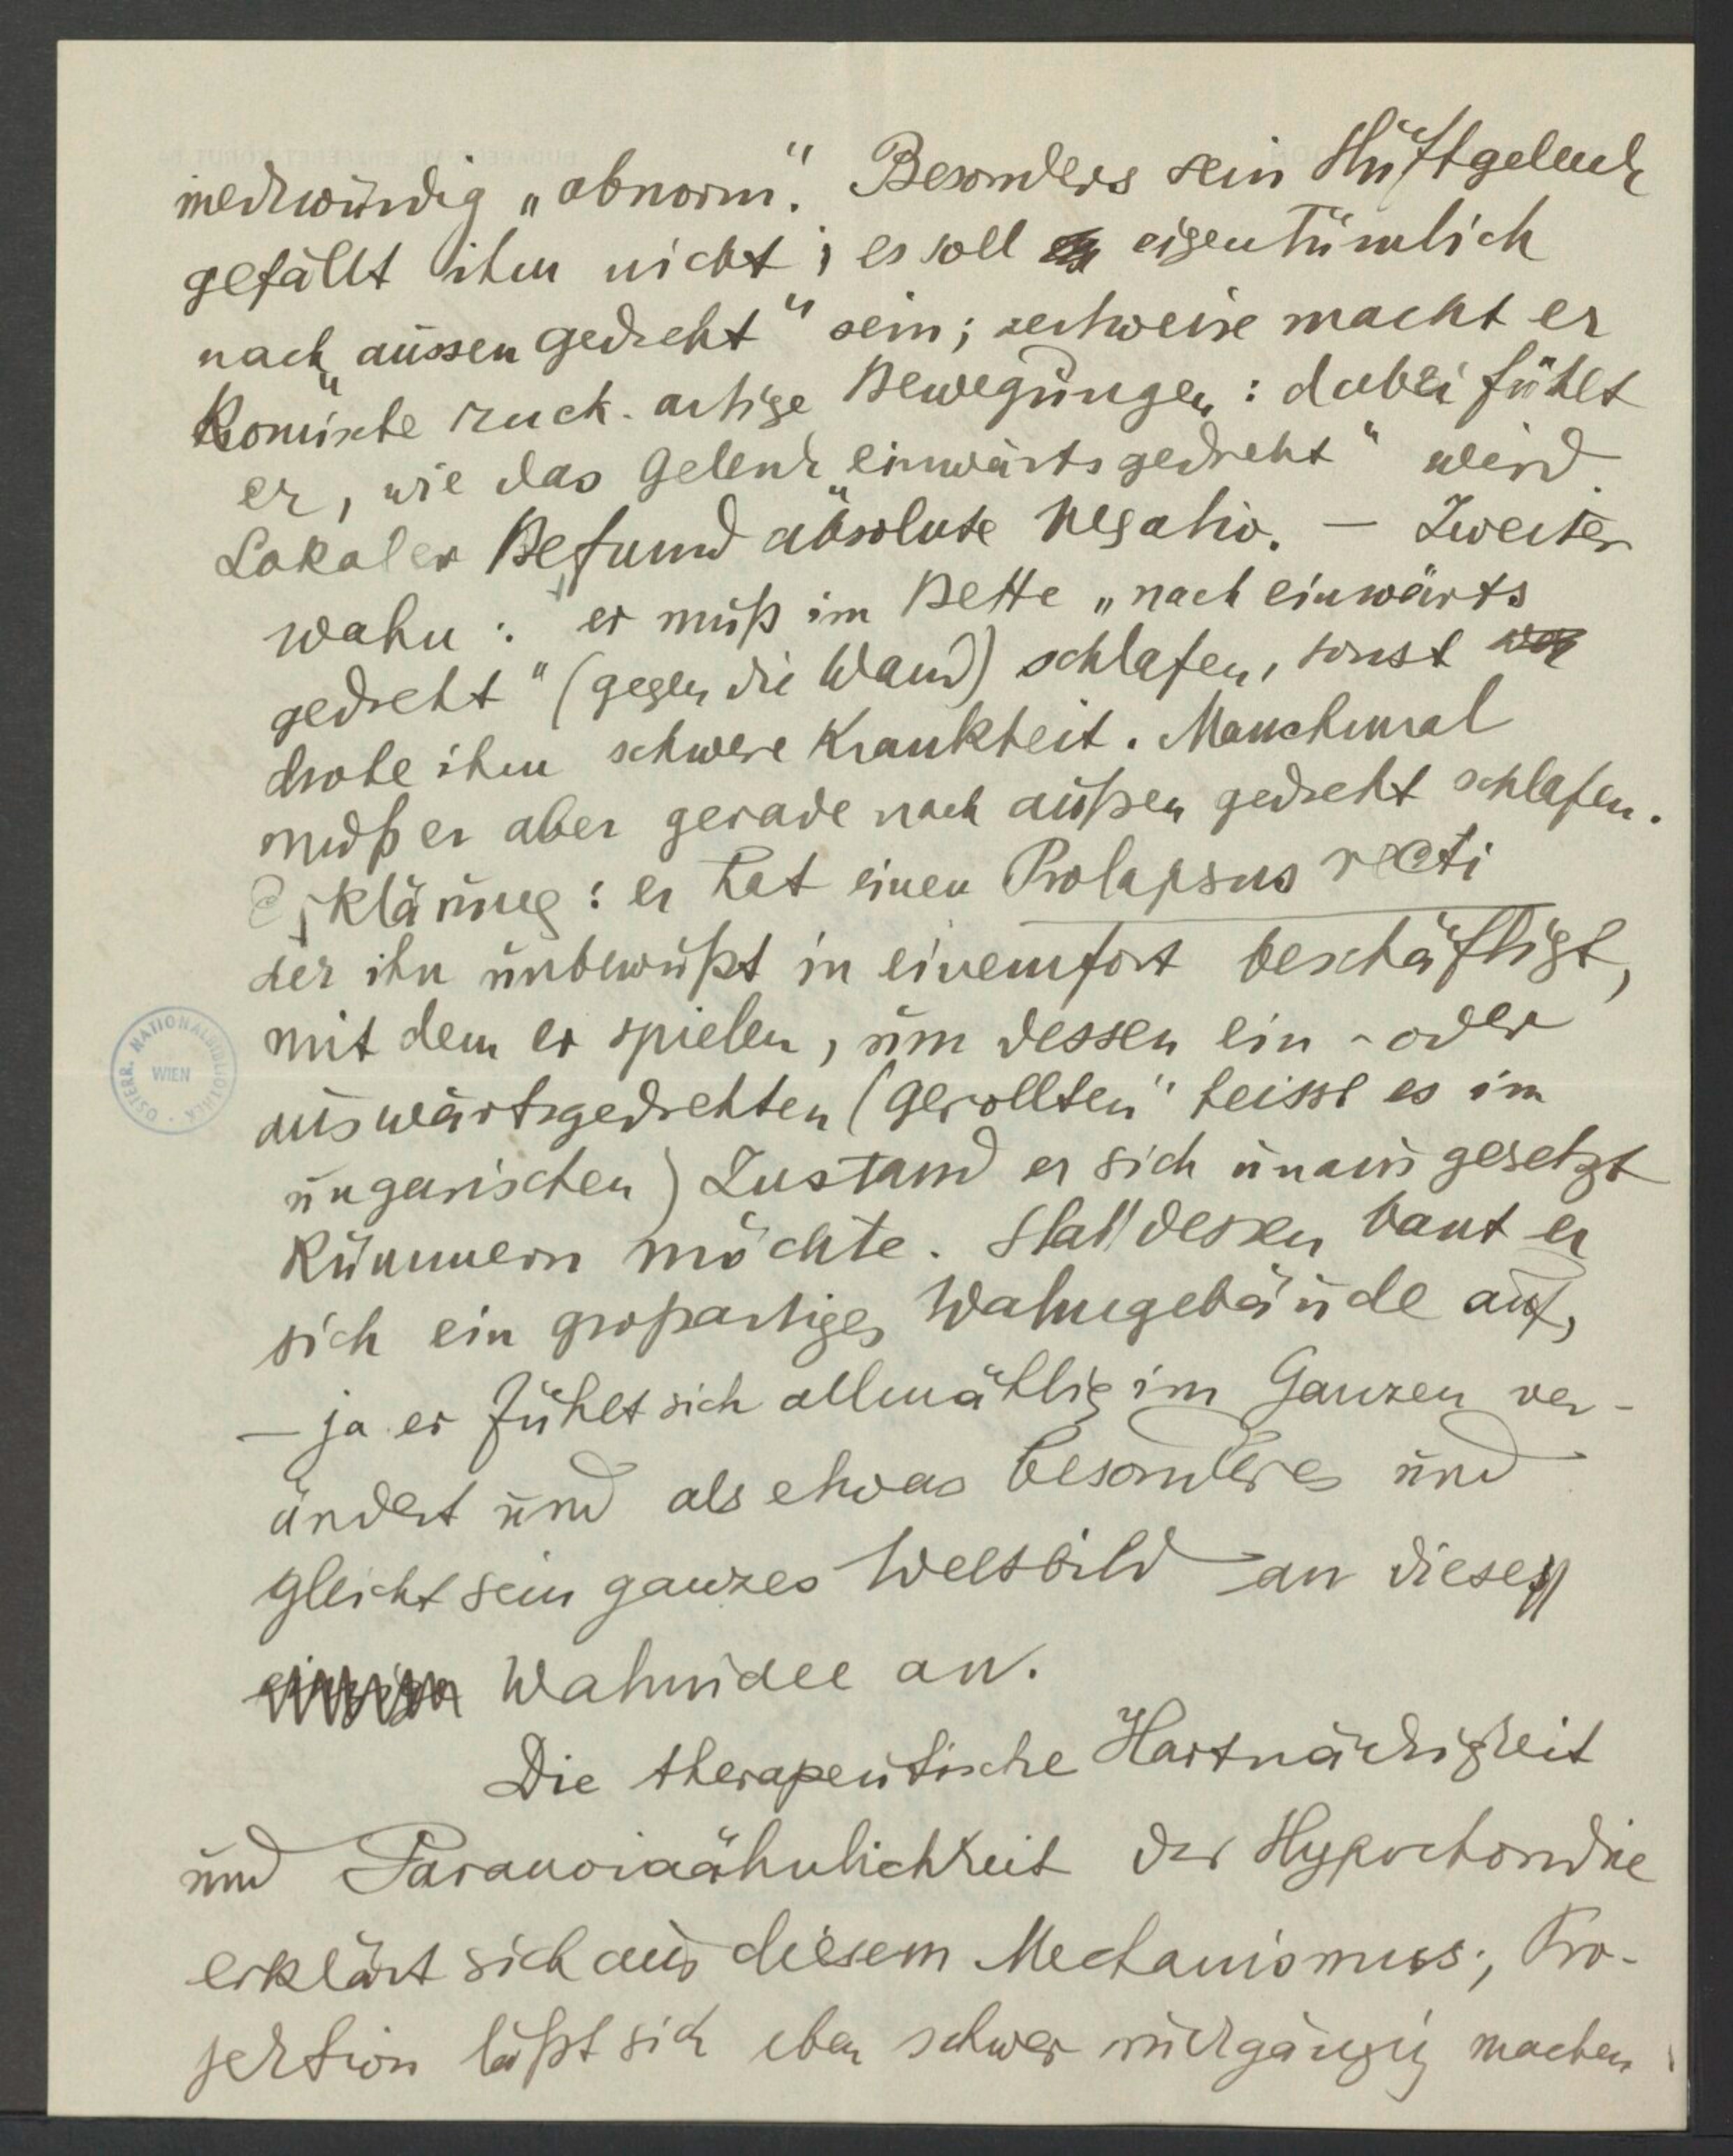 merkwürdig „abnorm“. Besonders sein Hüftgelenk
gefällt ihm nicht; es soll eigentümlich
nach „aussen gedreht“ sein; zeitweise macht er
komische ruck-artige Bewegungen: dabei fühlt
er, wie das Gelenk „einwärtsgedreht“ wird.
Lokaler Befund absolute negativ. — Zweiter
wahn: er muß im Bette „nach einwärts
gedreht“ (gegen die Wand) schlafen, sonst
drohe ihm schwere Krankheit. Manchmal
muß er aber gerade nach außen gedreht schlafen.
Erklärung: er hat einen Prolapsus recti
der ihn unbewußt in einemfort beschäftigt,
mit dem er spielen, um dessen ein- oder
auswärtsgedrehten („gerollten“ heisst es im
ungarischen) Zustand er sich unausgesetzt
kümmern möchte. Statt dessen baut er
sich ein großartiges Wahngebäude auf,
— ja er fühlt sich allmählig im Ganzen ver-
ändert und als etwas besonderes und
gleicht sein ganzes Weltbild an diese
Wahnidee an.
Die therapeutische Hartnäckigkeit
und Paranoiaähnlichkeit der Hypochondrie
erklärt sich aus diesem Mechanismus; Pro-
jektion läßt sich eben schwer rückgängig machen
ÖSTERR. NATIONALBIBLIOTHEK · WIEN